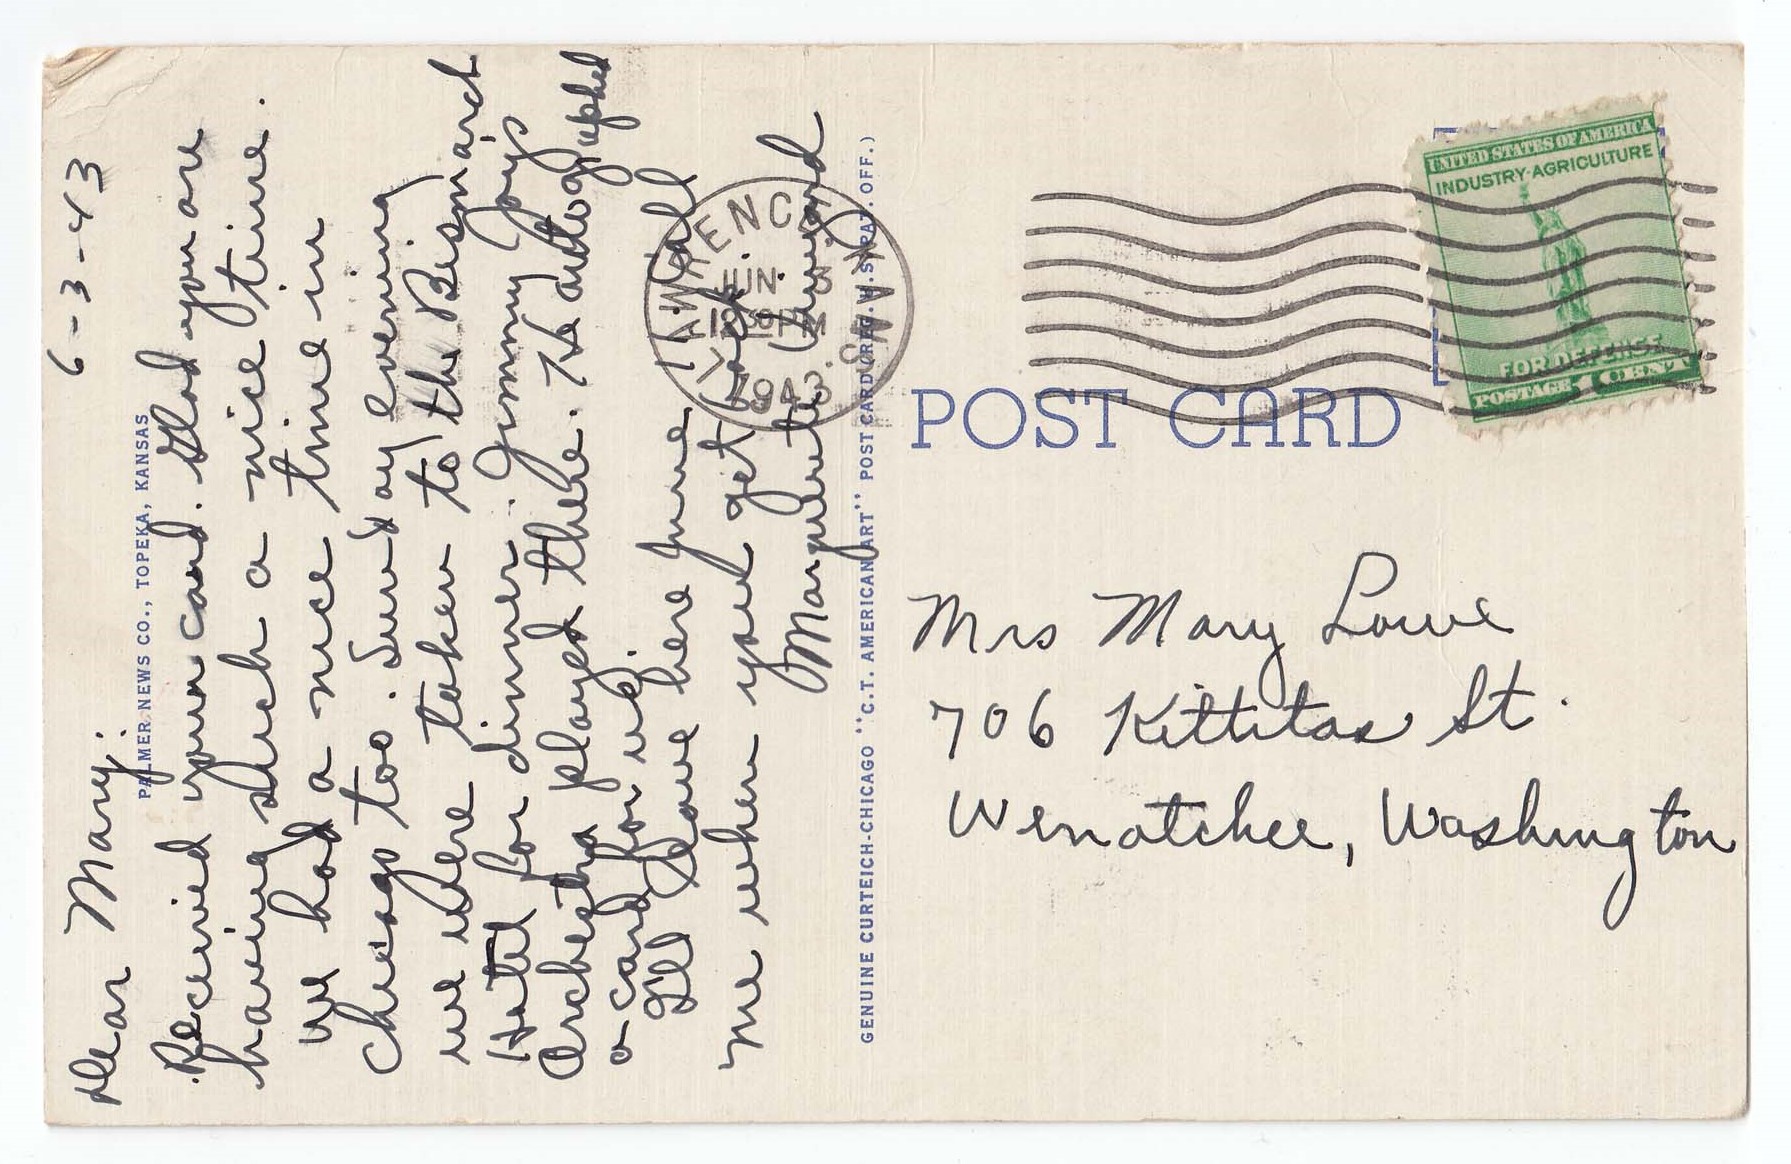 6-3-43
Dear Mary:
Received your card. Glad you are
having such a nice time.
We had a nice time in
Chicago too. Sunday evening
we were taken to the Bismarck
Hotel for dinner. Jimmy Joy's
Orchestra played there. He autographed
a card for us.
I'll leave here June 11. Call
me when you get back.
Marguerite
PALMER NEWS CO., TOPEKA, KANSAS
GENUINE CURTEICH-CHICAGO "C.T. AMERICAN ART" POST CARD (REG. U.S. PAT. OFF.)
LAWRENCE
JUN 3
1943
KANS.
UNITED STATES OF AMERICA
INDUSTRY·AGRICULTURE
FOR DEFENSE
POSTAGE 1 CENT
POST CARD
Mrs Mary Lowe
706 Kittitas St.
Wenatchee, Washington